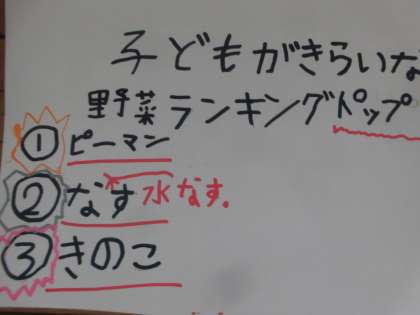 子どもがきらいな
野菜ランキングトップ
① ピーマン
② なす 水なす。
③ きのこ